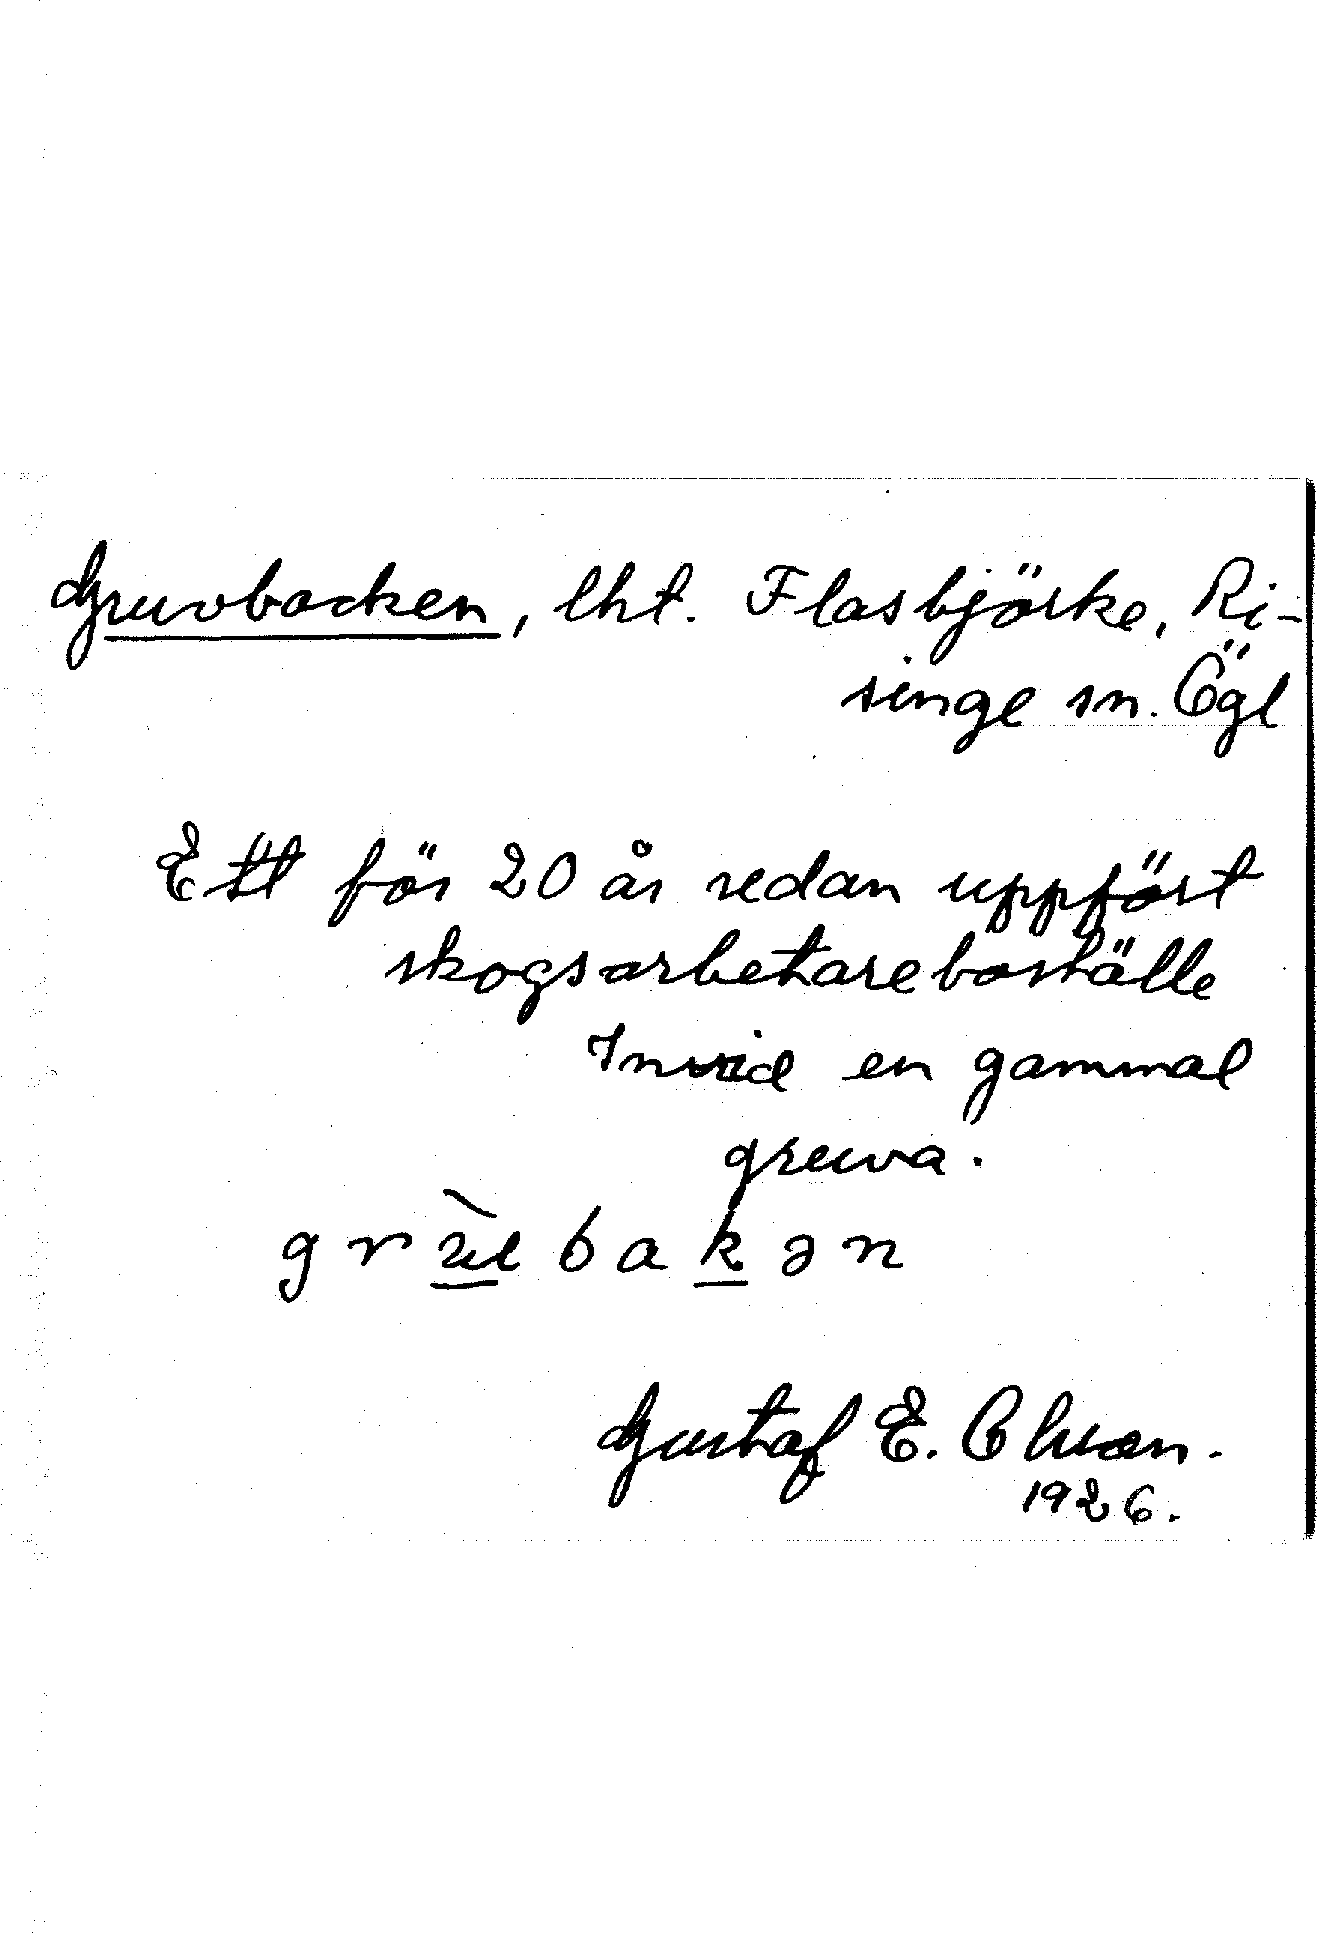 Gruvbacken, lht. Flasbjörke, Ri-
singe sn. Ögl
Ett för 20 år sedan uppfört
skogsarbetareboställe
Invid en gammal
gruva.
bakən
Gustaf E.
1926.